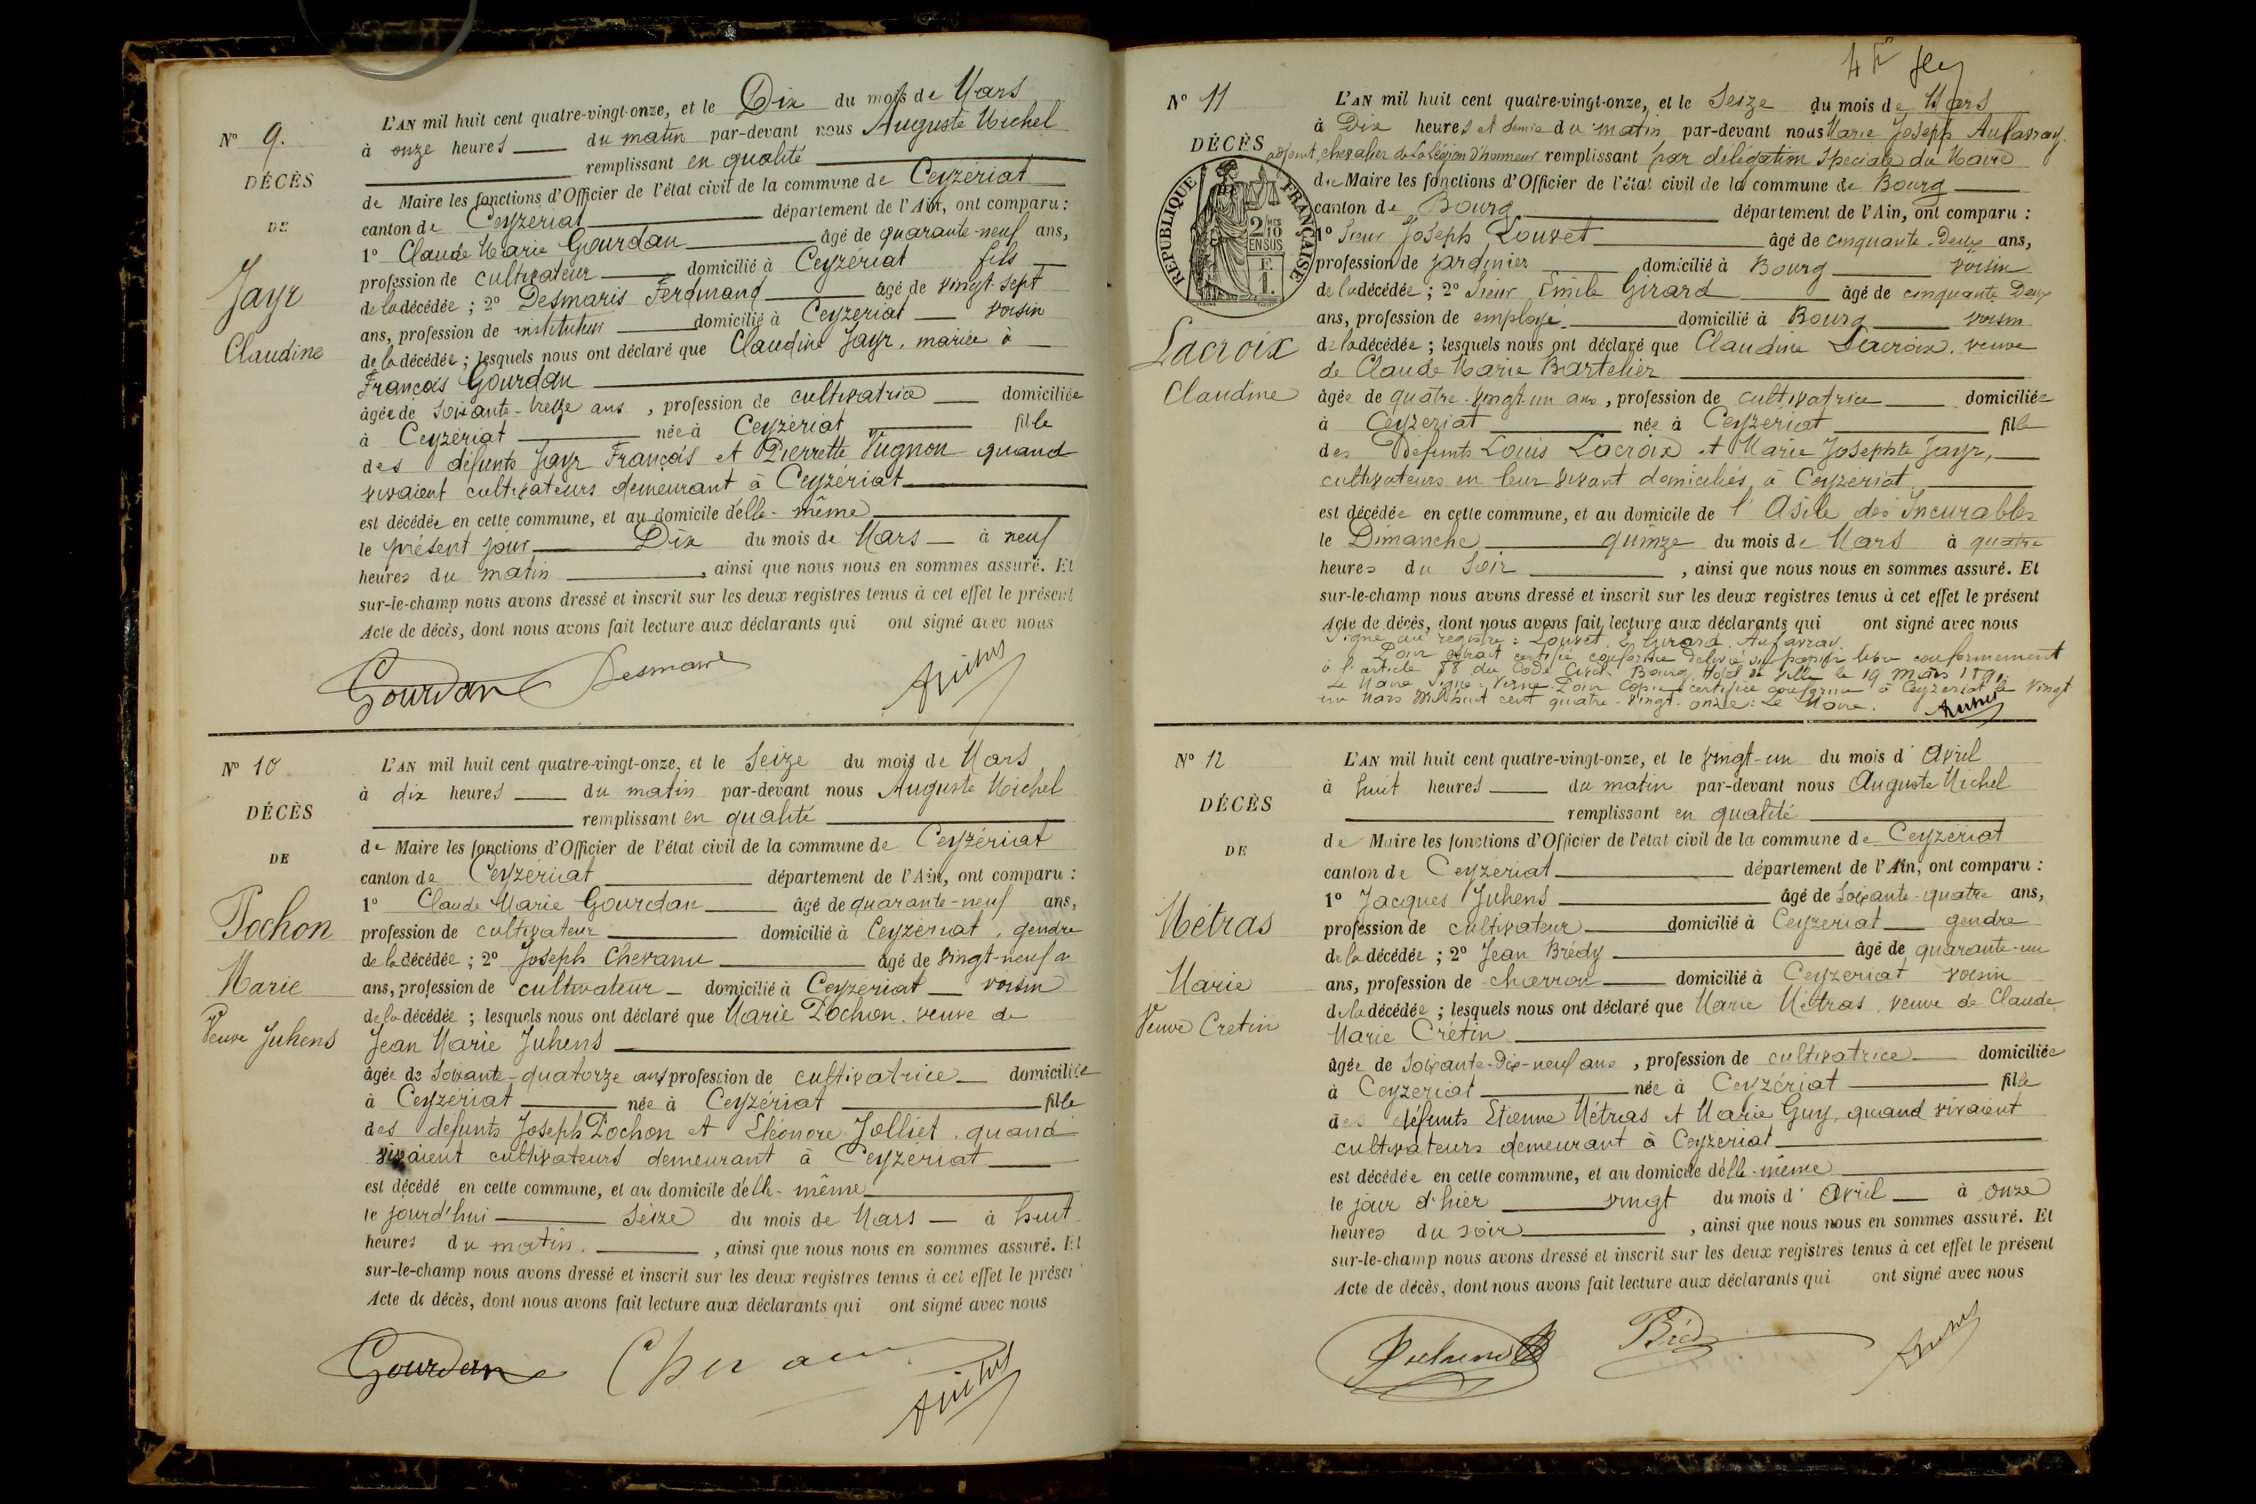 N° 9.
DÉCÈS
DE
Jayr
Claudine
L'AN mil huit cent quatre-vingt-onze, et le Dix du mois de Mars
à onze heures du matin par-devant nous Auguste Michel
remplissant en qualité
de Maire les fonctions d'Officier de l'état civil de la commune de Ceyzériat
canton de Ceyzériat département de l'Ain, ont comparu :
1° Claude Marie Gourdan âgé de quarante-neuf ans,
profession de cultivateur domicilié à Ceyzériat fils
de la décédée ; 2° Desmaris Ferdinand âgé de vingt-sept
ans, profession de instituteur domicilié à Ceyzériat voisin
de la décédée ; lesquels nous ont déclaré que Claudine Jayr, mariée à
François Gourdan
âgée de soixante-treize ans, profession de cultivatrice domiciliée
à Ceyzériat née à Ceyzériat fille
des défunts Jayr François et Pierrette Vugnon quand
vivaient cultivateurs demeurant à Ceyzériat
est décédée en cette commune, et au domicile d'elle-même
le présent jour Dix du mois de Mars à neuf
heures du matin, ainsi que nous nous en sommes assuré. Et
sur-le-champ nous avons dressé et inscrit sur les deux registres tenus à cet effet le présent
Acte de décès, dont nous avons fait lecture aux déclarants qui ont signé avec nous
Gourdan Desmaris
N° 10
DÉCÈS
DE
Pochon
Marie
Veuve Juhens
L'AN mil huit cent quatre-vingt-onze, et le Seize du mois de Mars
à dix heures du matin par-devant nous Auguste Michel
remplissant en qualité
de Maire les fonctions d'Officier de l'état civil de la commune de Ceyzériat
canton de Ceyzériat département de l'Ain, ont comparu :
1° Claude Marie Gourdan âgé de quarante-neuf ans,
profession de cultivateur domicilié à Ceyzériat, gendre
de la décédée ; 2° Joseph Chevanu âgé de vingt-neuf a
ans, profession de cultivateur domicilié à Ceyzériat voisin
de la décédée ; lesquels nous ont déclaré que Marie Pochon, veuve de
Jean Marie Juhens
âgée de soixante-quatorze ans profession de cultivatrice domiciliée
à Ceyzériat née à Ceyzériat fille
des défunts Joseph Pochon et Eléonore Jolliet, quand
vivaient cultivateurs demeurant à Ceyzériat
est décédé en cette commune, et au domicile d'elle-même
le jourd'hui Seize du mois de Mars à huit
heures du matin, ainsi que nous nous en sommes assuré. Et
sur-le-champ nous avons dressé et inscrit sur les deux registres tenus à cet effet le présent
Acte de décès, dont nous avons fait lecture aux déclarants qui ont signé avec nous
Gourdan
N° 11
DÉCÈS
RÉPUBLIQUE FRANÇAISE
2/10
EN SUS
Lacroix
Claudine
L'AN mil huit cent quatre-vingt-onze, et le Seize du mois de Mars
à Dix heures et demie du matin par-devant nous Marie Joseph Aufavray
adjoint, chevalier de la Légion d'honneur remplissant par délégation spéciale du Maire
du Maire les fonctions d'Officier de l'état civil de la commune de Bourg
canton de Bourg département de l'Ain, ont comparu :
1° Sieur Joseph Louvet âgé de cinquante-deux ans,
profession de jardinier domicilié à Bourg voisin
de la décédée ; 2° Sieur Emile Girard âgé de cinquante Deux
ans, profession de employé domicilié à Bourg voisin
de la décédée ; lesquels nous ont déclaré que Claudine Lacroix, veuve
de Claude Marie Bartelier
âgée de quatre-vingt-un ans, profession de cultivatrice domiciliée
à Ceyzeriat née à Ceyzeriat fille
des Défunts Louis Lacroix et Marie Josephte Jayr,
cultivateurs en leur vivant domiciliés à Ceyzériat
est décédée en cette commune, et au domicile de l'Asile des Incurables
le Dimanche quinze du mois de Mars à quatre
heures du soir, ainsi que nous nous en sommes assuré. Et
sur-le-champ nous avons dressé et inscrit sur les deux registres tenus à cet effet le présent
Acte de décès, dont nous avons fait lecture aux déclarants qui ont signé avec nous
Signé au registre : Louvet, E. Girard, Aufavray
Pour extrait certifié conforme délivré sur papier libre conformement
à l'article 80 du Code Civil. Bourg, Hôtel de Ville le 19 mars 1891
Le Maire signé : Verne. Pour Copie certifiée conforme à Ceyzériat le vingt
un Mars mil huit cent quatre-vingt-onze : Le Maire.
N° 12
DÉCÈS
DE
Métras
Marie
Veuve Cretin
L'AN mil huit cent quatre-vingt-onze, et le vingt-un du mois d'Avril
à huit heures du matin par-devant nous Auguste Michel
remplissant en qualité
de Maire les fonctions d'Officier de l'état civil de la commune de Ceyzériat
canton de Ceyzériat département de l'Ain, ont comparu :
1° Jacques Juhens âgé de soixante-quatre ans,
profession de cultivateur domicilié à Ceyzeriat gendre
de la décédée ; 2° Jean Brédy âgé de quarante-un
ans, profession de charron domicilié à Ceyzeriat voisin
de la décédée ; lesquels nous ont déclaré que Marie Métras, veuve de Claude
Marie Crétin
âgée de soixante-dix-neuf ans, profession de cultivatrice domiciliée
à Ceyzeriat née à Ceyzériat fille
des défunts Etienne Métras et Marie Guy, quand vivaient
cultivateurs demeurant à Ceyzeriat
est décédée en cette commune, et au domicile d'elle-même
le jour d'hier vingt du mois d'Avril à onze
heures du soir, ainsi que nous nous en sommes assuré. Et
sur-le-champ nous avons dressé et inscrit sur les deux registres tenus à cet effet le présent
Acte de décès, dont nous avons fait lecture aux déclarants qui ont signé avec nous